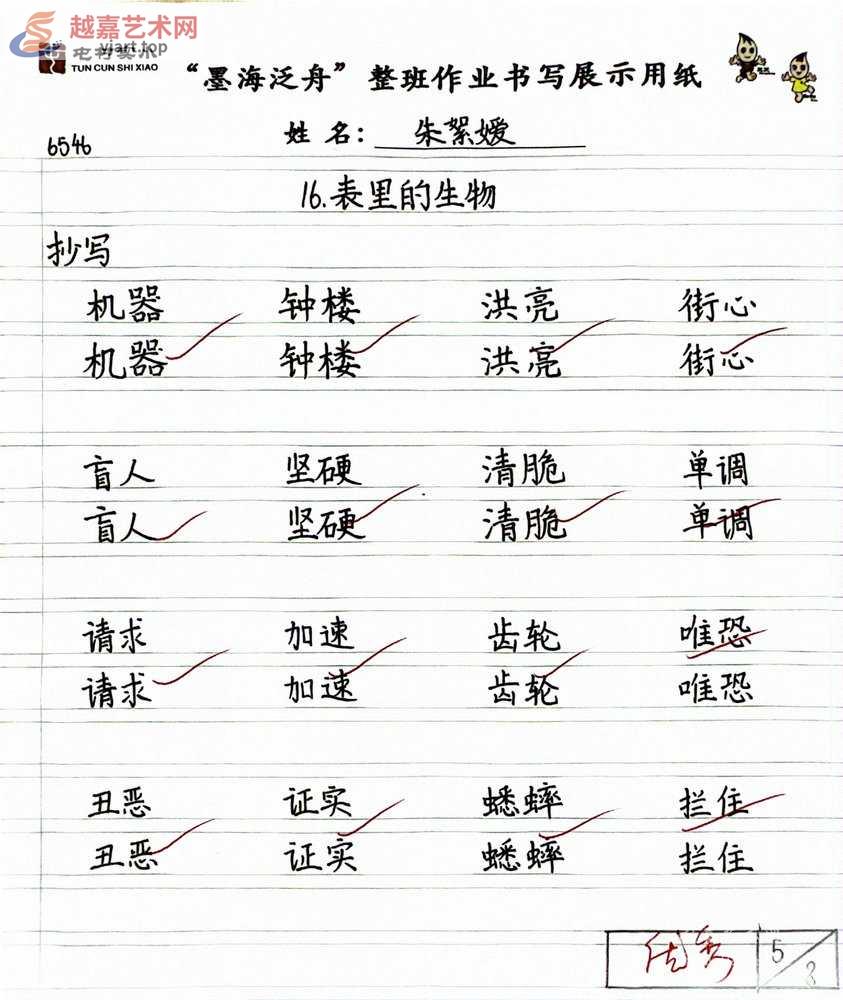 越嘉艺术网
yjart.top
屯村实小
TUN CUN SHI XIAO
“墨海泛舟”整班作业书写展示用纸
6546
姓名：朱絮嫒
16.表里的生物
抄写
机器 钟楼 洪亮 街心
机器 钟楼 洪亮 街心
盲人 坚硬 清脆 单调
盲人 坚硬 清脆 单调
请求 加速 齿轮 唯恐
请求 加速 齿轮 唯恐
丑恶 证实 蟋蟀 拦住
丑恶 证实 蟋蟀 拦住
优秀 5/8